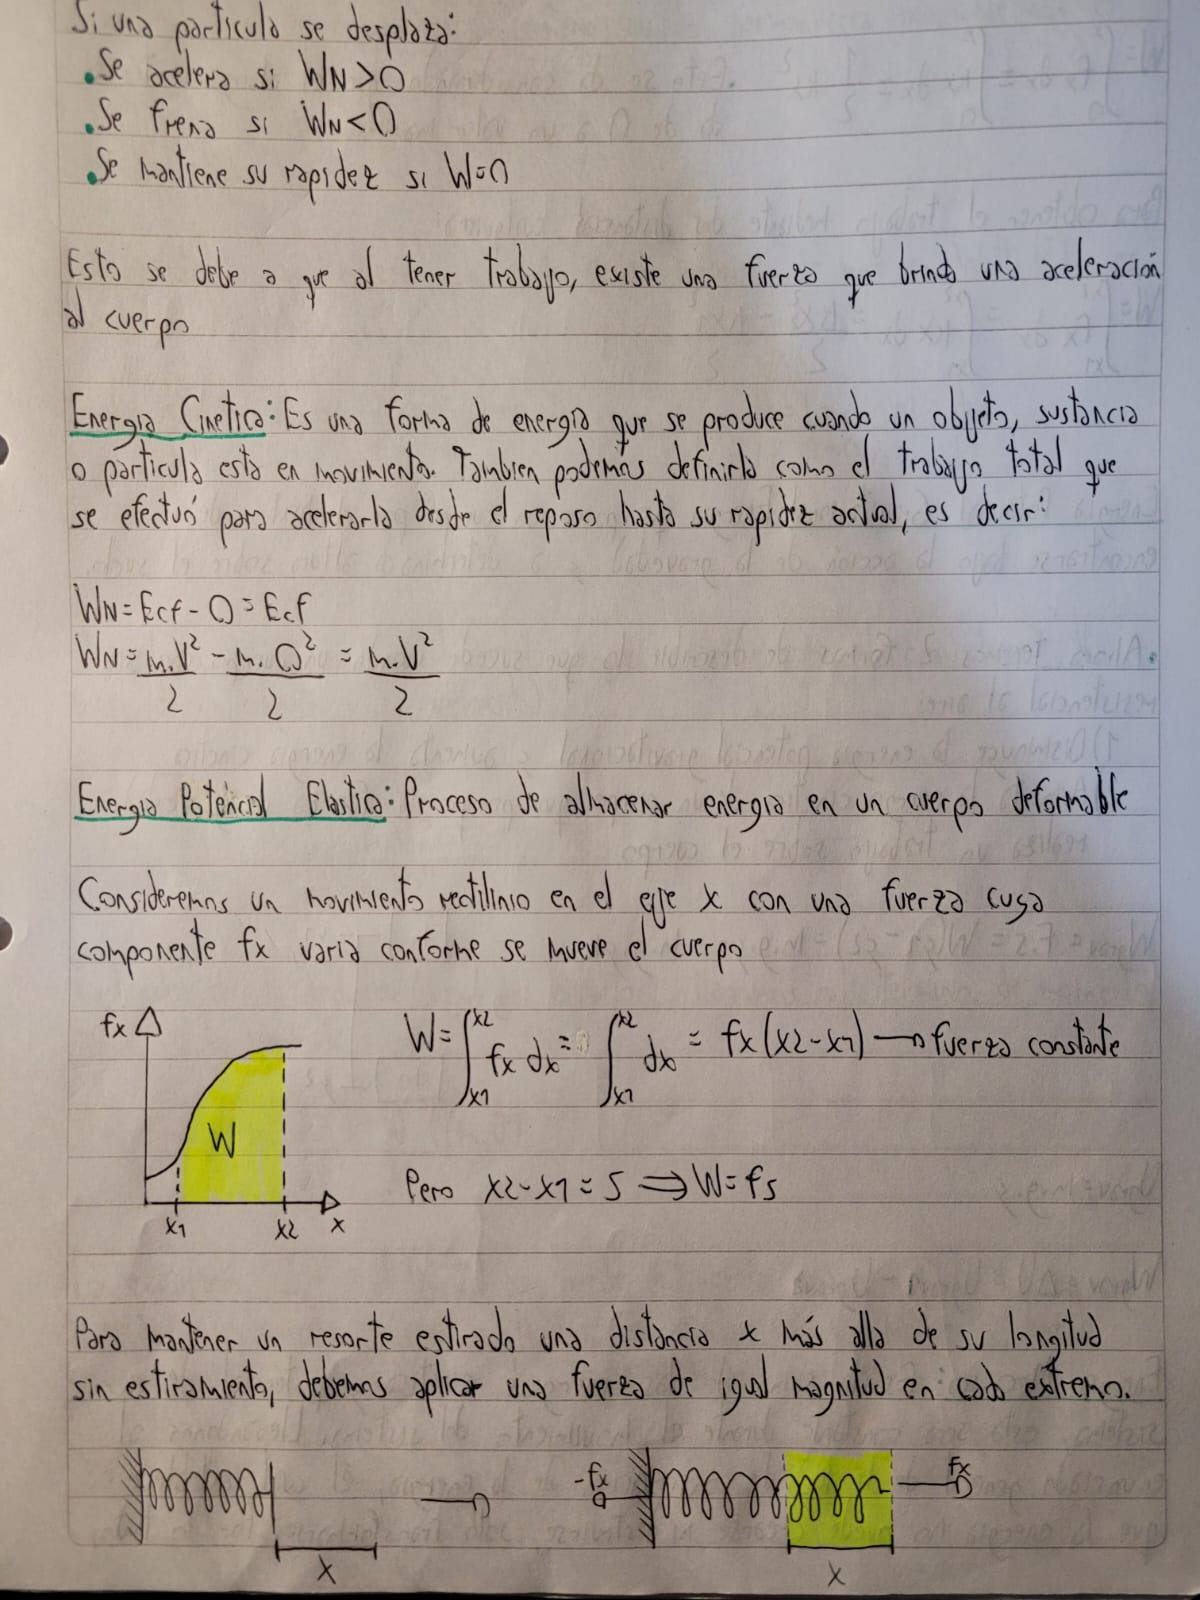 Si una particula se desplaza:
• Se acelera si WN>0
• Se frena si WN<0
• Se mantiene su rapidez si W=0
Esto se debe a que al tener trabajo, existe una fuerza que brinda una aceleración
al cuerpo
Energia Cinetica: Es una forma de energia que se produce cuando un objeto, sustancia
o particula esta en movimiento. Tambien podemos definirla como el trabajo total que
se efectuó para acelerarla desde el reposo hasta su rapidez actual, es decir:
WN = Ecf - 0 = Ecf
WN = m.V²/2 - m.0²/2 = m.V²/2
Energia Potencial Elastica: Proceso de almacenar energia en un cuerpo deformable
Consideremos un movimiento rectilinio en el eje x con una fuerza cuya
componente fx varia conforme se mueve el cuerpo
fx
W
x1 x2 x
W = ∫x1x2 fx dx = ∫x1x2 dx = fx(x2-x1) → fuerza constante
Pero x2-x1 = S ⇒ W = fs
Para mantener un resorte estirado una distancia x más alla de su longitud
sin estiramiento, debemos aplicar una fuerza de igual magnitud en cada extremo.
-fx fx
x x